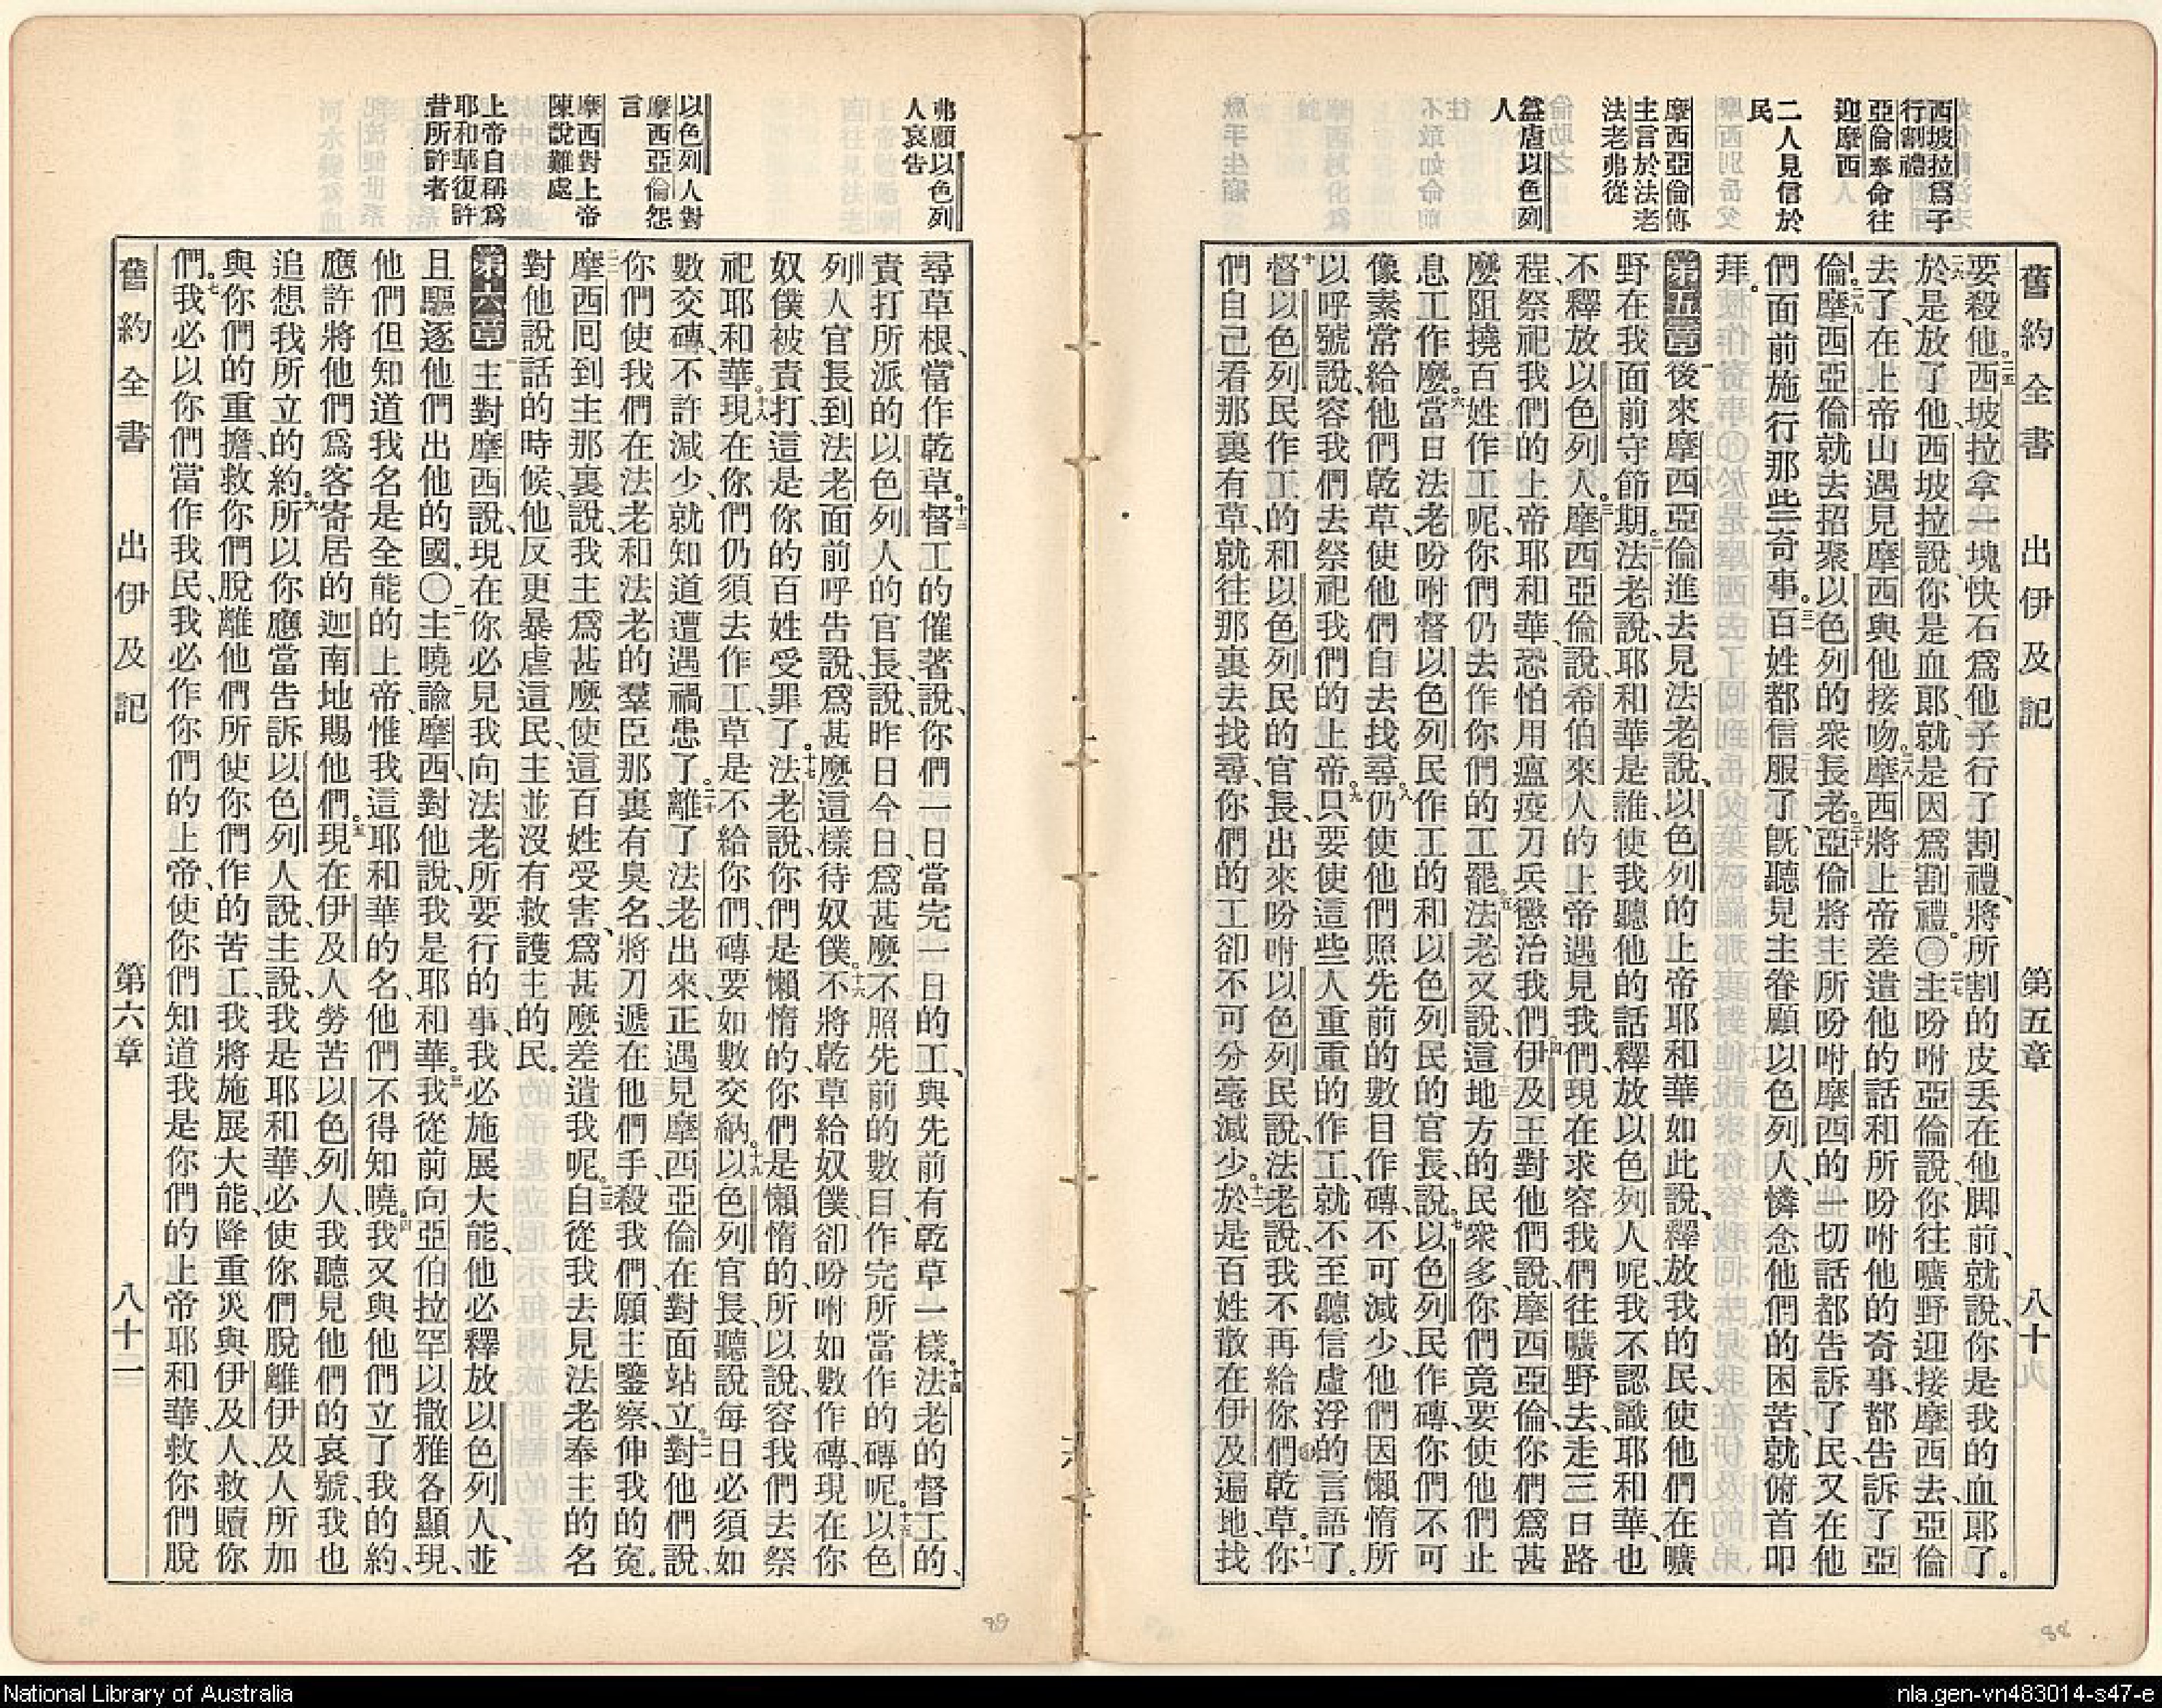 舊約全書　出伊及記　第五章　八十
西坡拉爲子
行割禮
亞倫奉命往
迎摩西
二人見信於
民
摩西亞倫傳
主言於法老
法老弗從
益虐以色列
人
要殺他。二五西坡拉拿一塊快石爲他子行了割禮、將所割的皮丢在他脚前、就說、你是我的血郎了。
二六於是放了他、西坡拉說、你是血郎、就是因爲割禮。〇二七主吩咐亞倫說、你往曠野迎接摩西去、亞倫
去了、在上帝山遇見摩西與他接吻。二八摩西將上帝差遣他的話和所吩咐他的奇事、都告訴了亞
倫。二九摩西亞倫就去招聚以色列的衆長老。三十亞倫將主所吩咐摩西的一切話都告訴了民、又在他
們面前施行那些奇事。三一百姓都信服了、旣聽見主眷顧以色列人、憐念他們的困苦、就俯首叩
拜。
第五章　一後來摩西亞倫進去見法老說、以色列的上帝耶和華如此說、釋放我的民、使他們在曠
野在我面前守節期。二法老說、耶和華是誰、使我聽他的話釋放以色列人呢、我不認識耶和華、也
不釋放以色列人。三摩西亞倫說、希伯來人的上帝遇見我們、現在求容我們往曠野去、走三日路
程、祭祀我們的上帝耶和華、恐怕用瘟疫刀兵懲治我們。四伊及王對他們說、摩西亞倫、你們爲甚
麼阻撓百姓作工呢、你們仍去作你們的工罷。五法老又說、這地方的民衆多、你們竟要使他們止
息工作麼。六當日法老吩咐督以色列民作工的和以色列民的官長說、七以色列民作磚、你們不可
像素常給他們乾草、使他們自去找尋。八仍使他們照先前的數目作磚、不可減少、他們因懶惰所
以呼號說、容我們去祭祀我們的上帝。九只要使這些人重重的作工、就不至聽信虛浮的言語了。
十督以色列民作工的和以色列民的官長出來吩咐以色列民說、法老說、我不再給你們乾草。十一你
們自己看那裏有草、就往那裏去找尋、你們的工卻不可分毫減少。十二於是百姓散在伊及遍地、找
弗願以色列
人哀告
以色列人對
摩西亞倫怨
言
摩西對上帝
陳說難處
上帝自稱爲
耶和華復許
昔所許者
尋草根、當作乾草。十三督工的催著說、你們一日當完一日的工、與先前有乾草一樣。十四法老的督工的、
責打所派的以色列人的官長、說、昨日今日、爲甚麼不照先前的數目作完所當作的磚呢。十五以色
列人官長到法老面前呼告說、爲甚麼這樣待奴僕。十六不將乾草給奴僕、卻吩咐如數作磚、現在你
奴僕被責打、這是你的百姓受罪了。十七法老說、你們是懶惰的、你們是懶惰的、所以說、容我們去祭
祀耶和華。十八現在你們仍須去作工、草是不給你們、磚要如數交納。十九以色列官長聽說每日必須如
數交磚、不許減少、就知道遭遇禍患了。二十離了法老出來、正遇見摩西亞倫在對面站立。二一對他們說、
你們使我們在法老和法老的羣臣那裏有臭名、將刀遞在他們手、殺我們、願主鑒察、伸我的寃。
二二摩西回到主那裏說、我主爲甚麼使這百姓受害、爲甚麼差遣我呢。二三自從我去見法老奉主的名
對他說話的時候、他反更暴虐這民、主並沒有救護主的民。
第六章　一主對摩西說、現在你必見我向法老所要行的事、我必施展大能、他必釋放以色列人、並
且驅逐他們出他的國。〇二主曉諭摩西、對他說、我是耶和華。三我從前向亞伯拉罕以撒雅各顯現、
他們但知道我名是全能的上帝、惟我這耶和華的名、他們不得知曉。四我又與他們立了我的約、
應許將他們爲客寄居的迦南地賜他們。五現在伊及人勞苦以色列人、我聽見他們的哀號、我也
追想我所立的約。六所以你應當告訴以色列人說、主說、我是耶和華、必使你們脫離伊及人所加
與你們的重擔、救你們脫離他們所使你們作的苦工、我將施展大能、降重災與伊及人、救贖你
們。七我必以你們當作我民、我必作你們的上帝、使你們知道我是你們的上帝耶和華、救你們脫
舊約全書　出伊及記　第六章　八十一
89
88
National Library of Australia
nla.gen-vn483014-s47-e